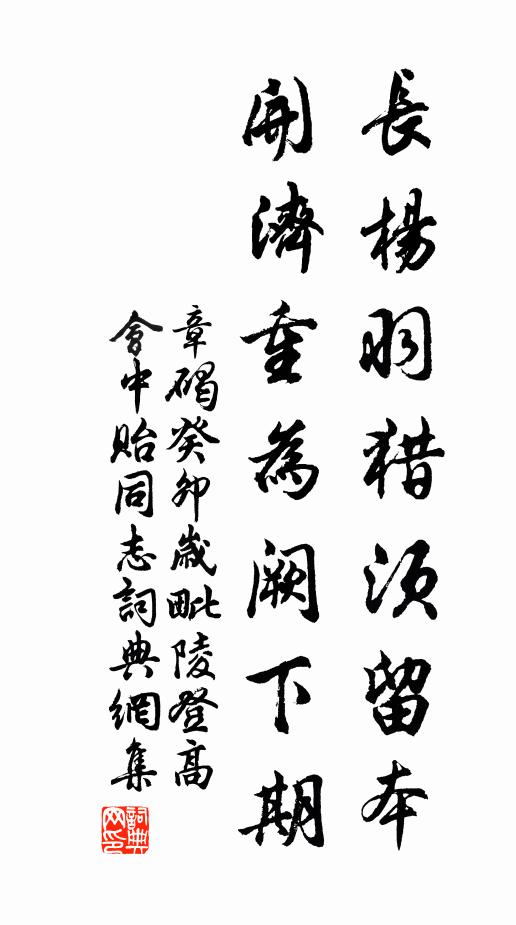 長楊羽猎須留本
開濟重為闕下期
章碣癸卯歲毗陵登高
會中貽同志詞典網集
詞典
网印